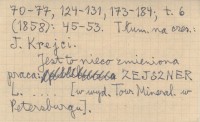 70-77, 124-131, 173-184, t. 6
(1858): 45-53. Tłum. na czes.
J. Krejči.
Jest to nieco zmieniona
praca: ZEJSZNER
L. .... [w wyd. Tow. Mineral. w
Petersburgu].